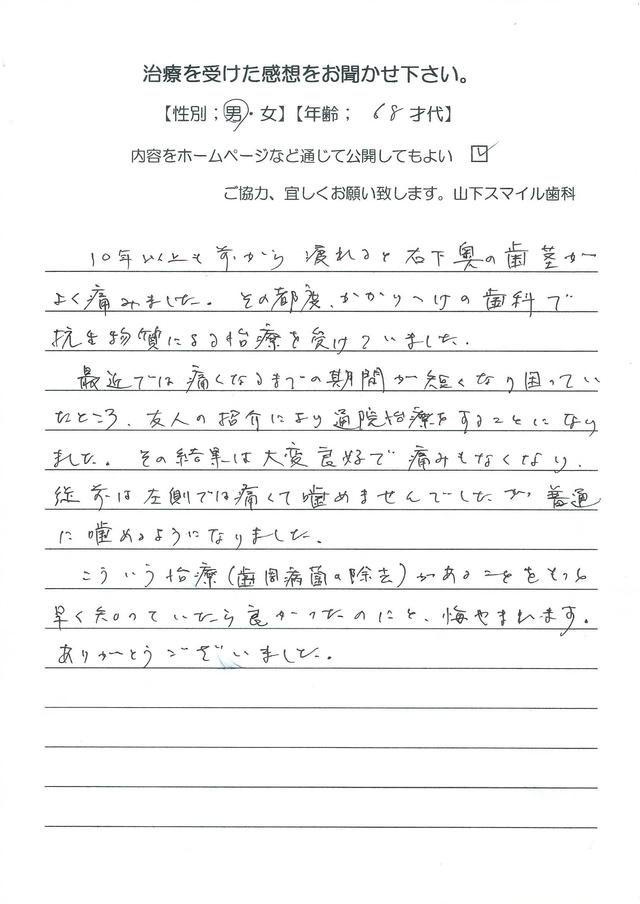 治療を受けた感想をお聞かせ下さい。
【性別；男・女】【年齢； 68才代】
内容をホームページなど通じて公開してもよい ☑
ご協力、宜しくお願い致します。山下スマイル歯科
10年以上も前から 疲れると右下奥の歯茎が
よく痛みました。その都度、かかりつけの歯科で
抗生物質による治療を受けていました。
最近では痛くなるまでの期間が短くなり困ってい
たところ、友人の紹介により通院治療をすることになり
ました。その結果は大変良好で痛みもなくなり、
従前は左側では痛くて噛めませんでしたが、普通
に噛めるようになりました。
こういう治療(歯周病菌の除去)があることをもっと
早く知っていたら良かったのにと、悔やまれます。
ありがとうございました。